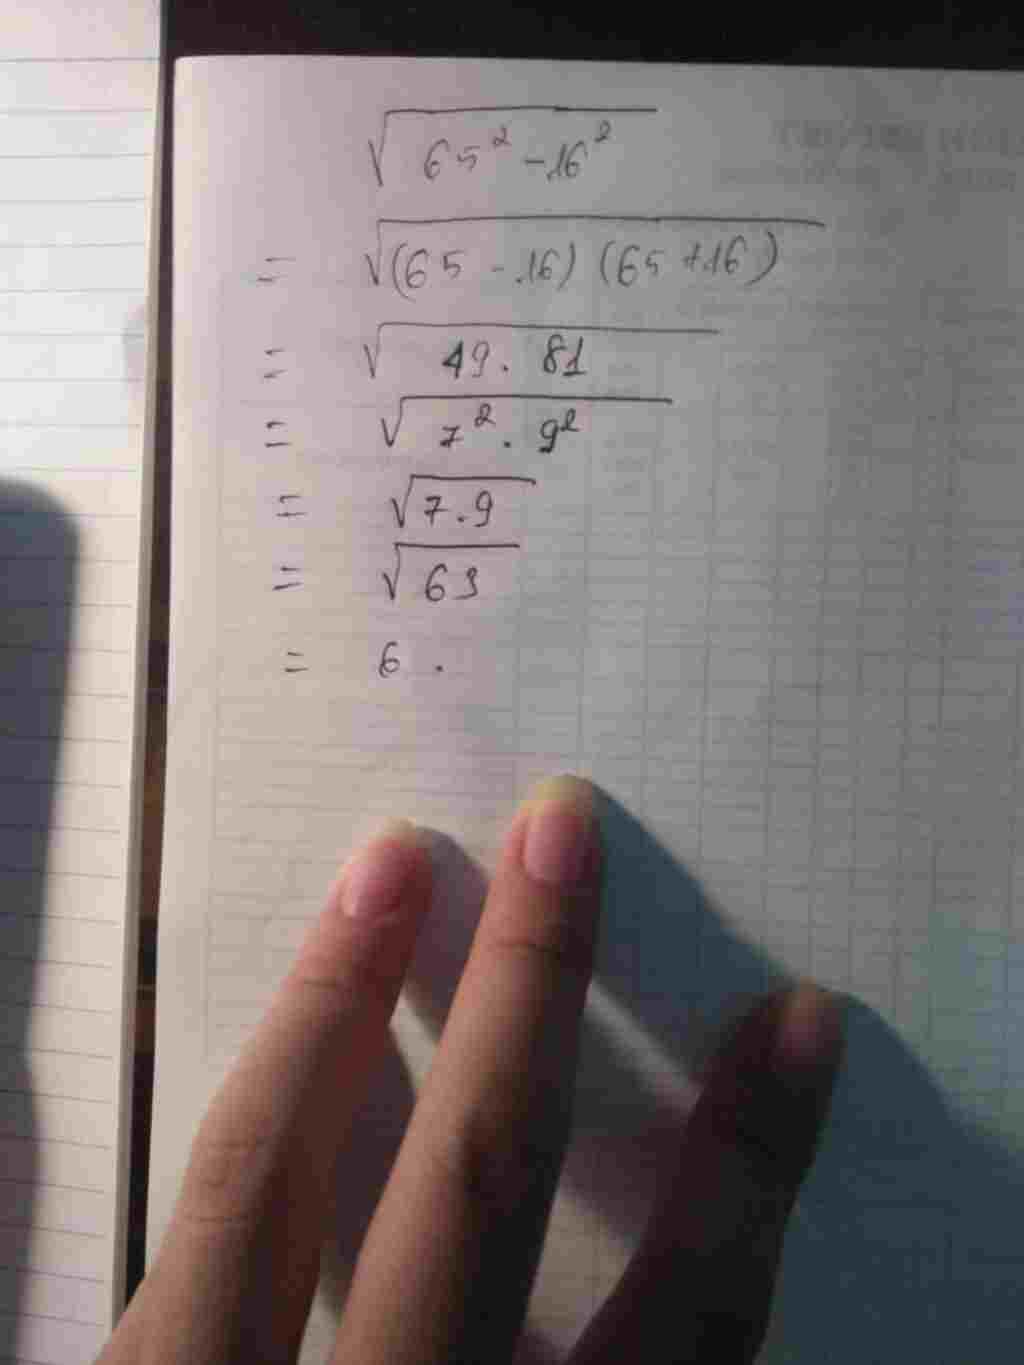 √(65² - 16²)
= √((65 - 16) (65 + 16))
= √(49 . 81)
= √(7² . 9²)
= √(7 . 9)
= √63
= 6 .